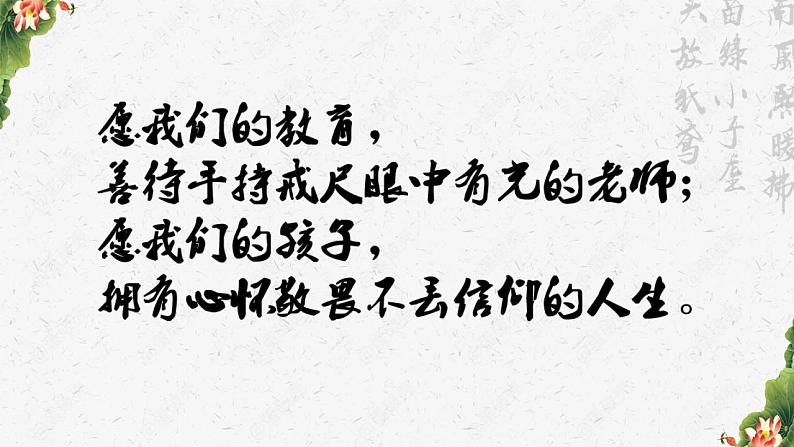 愿我们的教育，
善待手持戒尺眼中有光的老师；
愿我们的孩子，
拥有心怀敬畏不丢信仰的人生。
南風熙暖拂
苗綠小子座
头放紙鸢